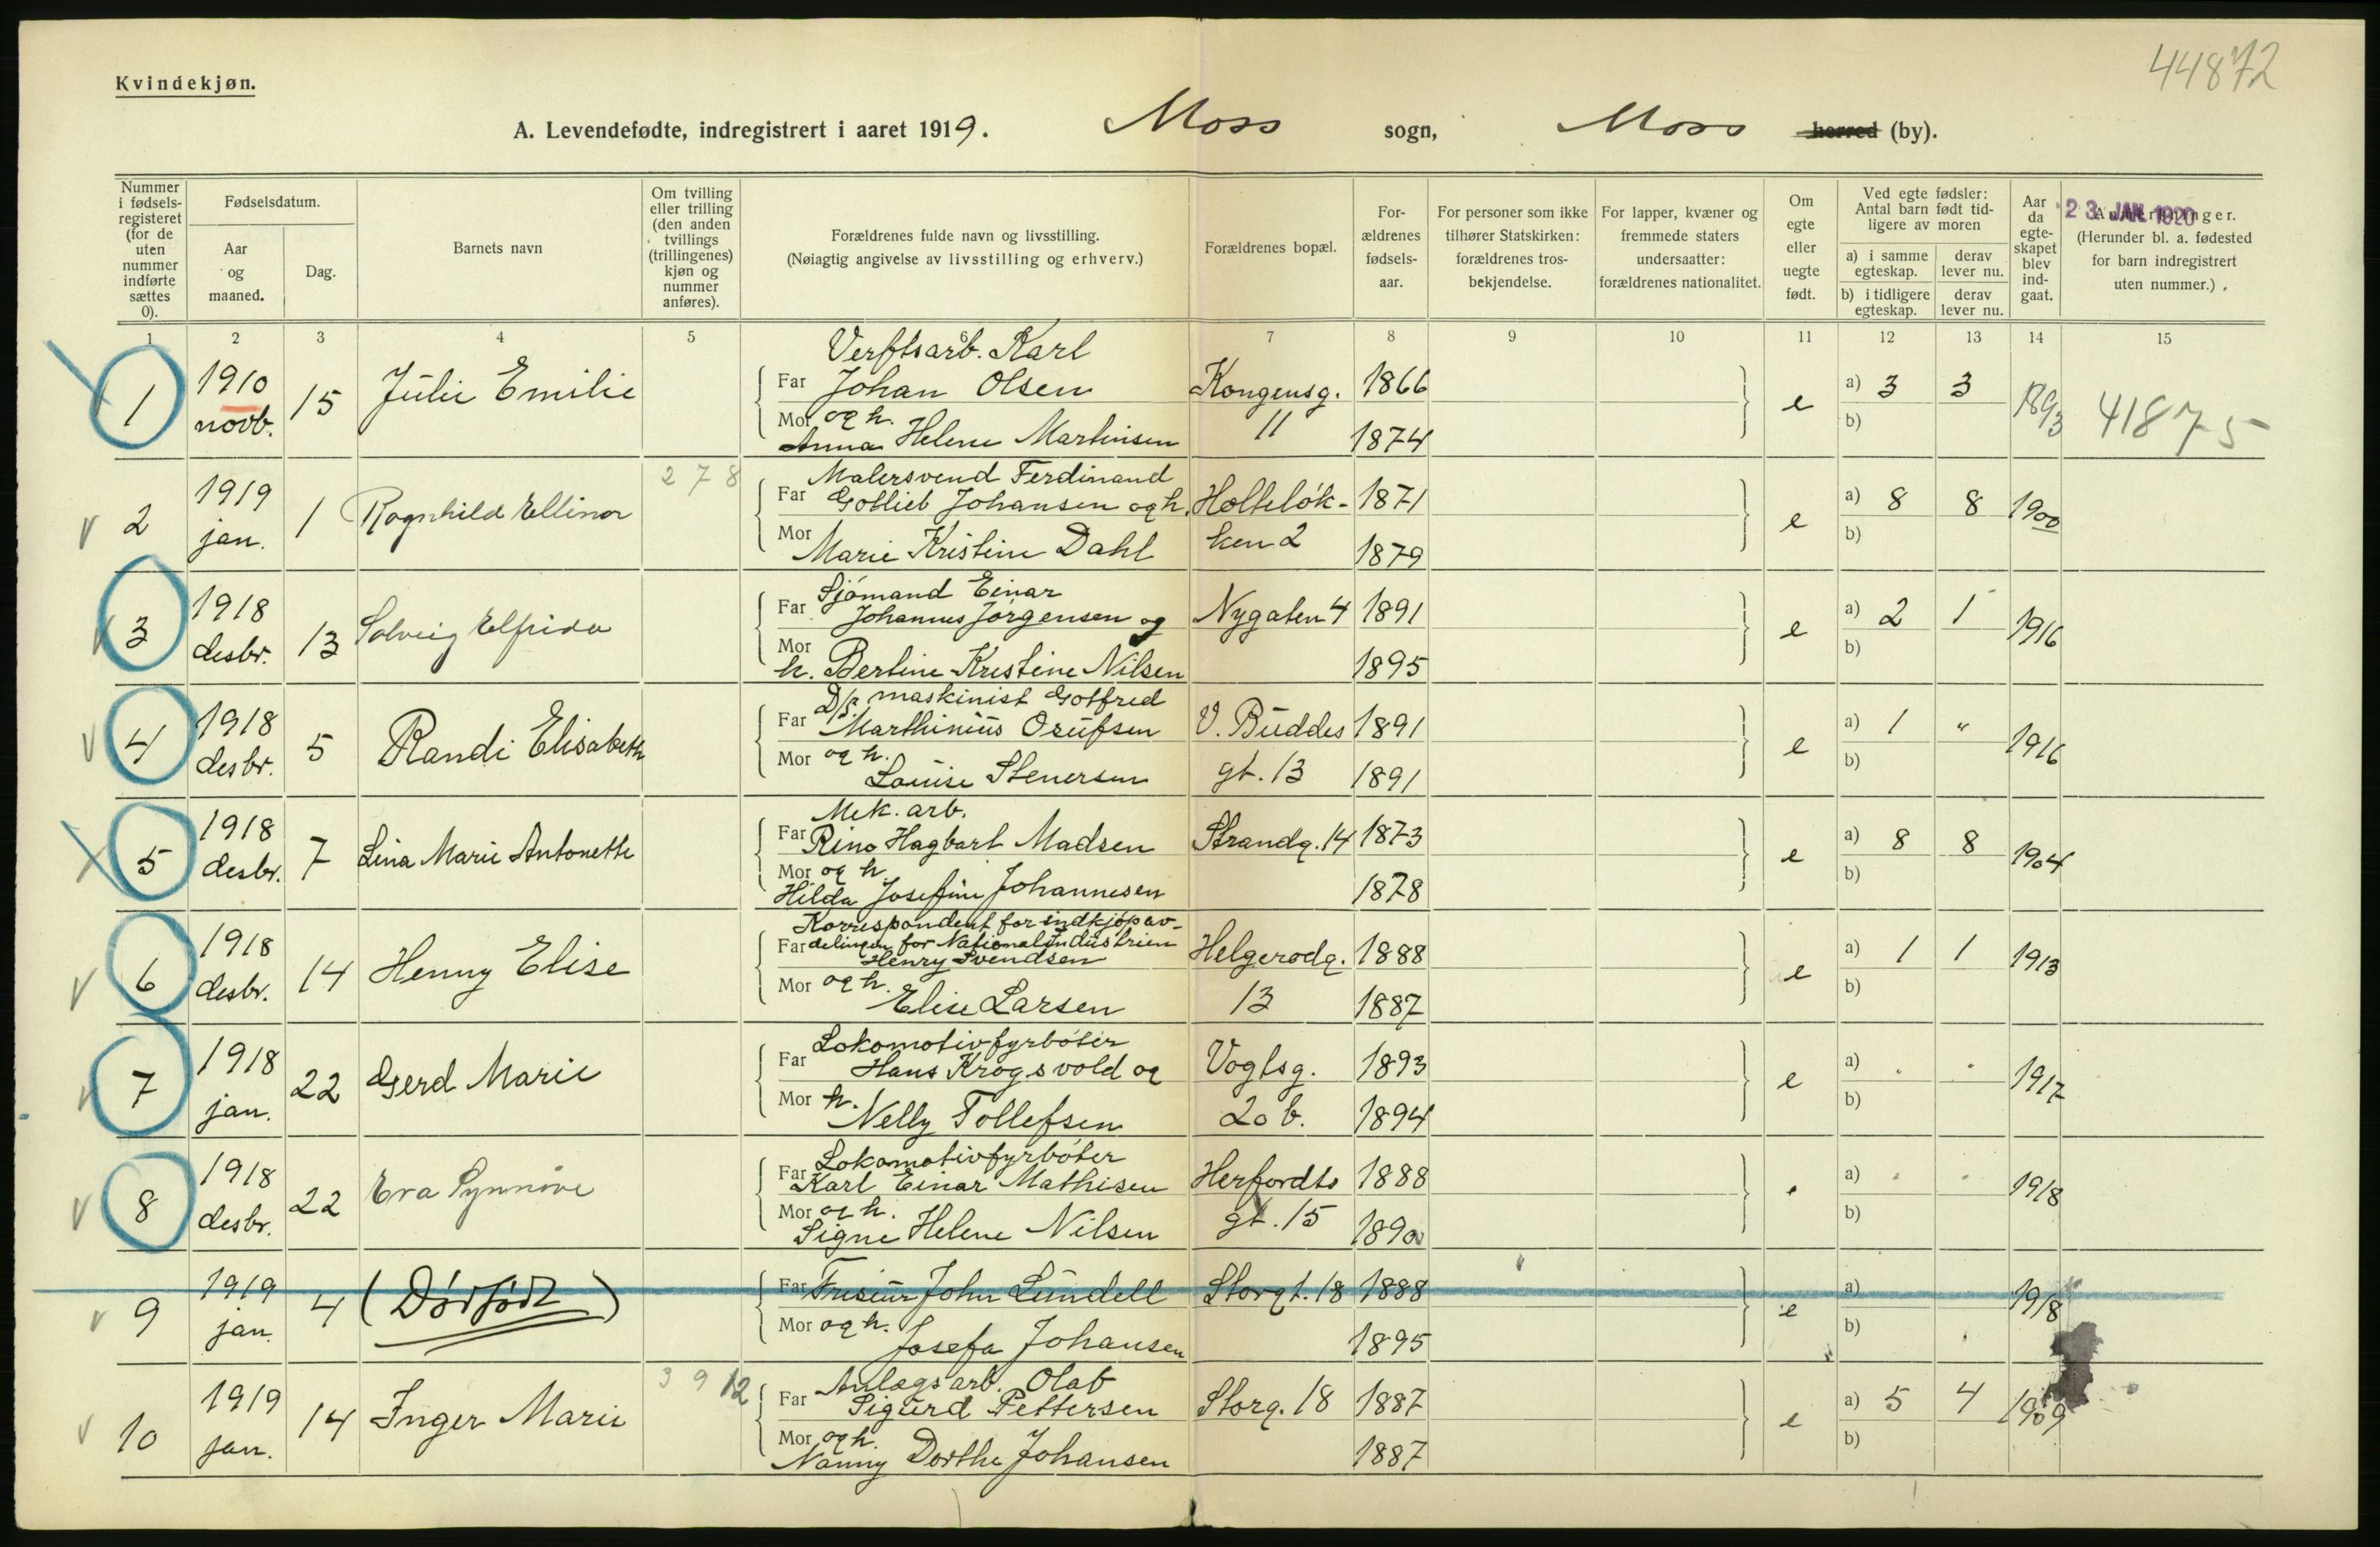 44872
Kvindekjøn.
A. Levendefødte, indregistrert i aaret 1919. Moss sogn, Moss herred (by).
Nummer i fødsels-registeret (for de uten nummer indførte sættes 0).
Fødselsdatum.
Aar og maaned.
Dag.
Barnets navn
Om tvilling eller trilling (den anden tvillings (trillingenes) kjøn og nummer anføres).
Forældrenes fulde navn og livsstilling.
(Nøiagtig angivelse av livsstilling og erhverv.)
Forældrenes bopæl.
For-ældrenes fødsels-aar.
For personer som ikke tilhører Statskirken: forældrenes tros-bekjendelse.
For lapper, kvæner og fremmede staters undersaatter: forældrenes nationalitet.
Om egte eller uegte født.
Ved egte fødsler: Antal barn født tid-ligere av moren
a) i samme egteskap. derav lever nu.
b) i tidligere egteskap. derav lever nu.
Aar da egte-skapet blev ind-gaat.
23 JAN. 1920
Anmerkninger.
(Herunder bl. a. fødested for barn indregistrert uten nummer.)
1 2 3 4 5 7 8 9 10 11 12 13 14 15
Verftsarb. Karl
1 1910 novb. 15 Julie Emilie Far Johan Olsen Kongensg. 11 1866 e a) 3 3 1893 41875
Mor og h. Anna Helene Martinsen 1874 b)
278
Malersvend Ferdinand
2 1919 jan. 1 Ragnhild Ellinor Far Gotlieb Johansen og h. Holteløk- 1871 e a) 8 8 1900
Mor Marie Kristine Dahl ken 2 1879 b)
Sjömand Einar
3 1918 desbr. 13 Solveig Elfrida Far Johannes Jørgensen og Nygaten 4 1891 e a) 2 1 1916
Mor h. Bertine Kristine Nilsen 1895 b)
D/s. maskinist Gotfred
4 1918 desbr. 5 Randi Elisabeth Far Marthinius Osufsen V. Buddes 1891 e a) 1 " 1916
Mor og h. Louise Stenersen gt. 13 1891 b)
Mek. arb.
5 1918 desbr. 7 Lina Marie Antonette Far Rino Hagbart Madsen Strandg. 14 1873 e a) 8 8 1904
Mor og h. Hilda Josefine Johannesen 1878 b)
Korrespondent for indkjøpav-
6 1918 desbr. 14 Henny Elise Far delingen for Nationalindustrien Henry Svendsen Helgerødg. 1888 e a) 1 1 1913
Mor og h. Elise Larsen 13 1887 b)
Lokomotivfyrbøter
7 1918 jan. 22 Gerd Marie Far Hans Krogsvold og Vogtsg. 1893 e a) " " 1917
Mor h. Nelly Tollefsen 20 b. 1894 b)
Lokomotivfyrbøter
8 1918 desbr. 22 Eva Synnöve Far Karl Einar Mathisen Herfordts 1888 a) 1918
Mor og h. Signe Helene Nilsen gt. 15 1890 b)
9 1919 jan. 4 (Dødfødt) Far Frisør John Lundell Storgt. 18 1888 e a) 1918
Mor og h. Josefa Johansen 1895 b)
3 9 12
Anlagsarb. Olaf
10 1919 jan. 14 Inger Marie Far Sigurd Pettersen Storg. 18 1887 e a) 5 4 1909
Mor og h. Nanny Dorthe Johansen 1887 b)